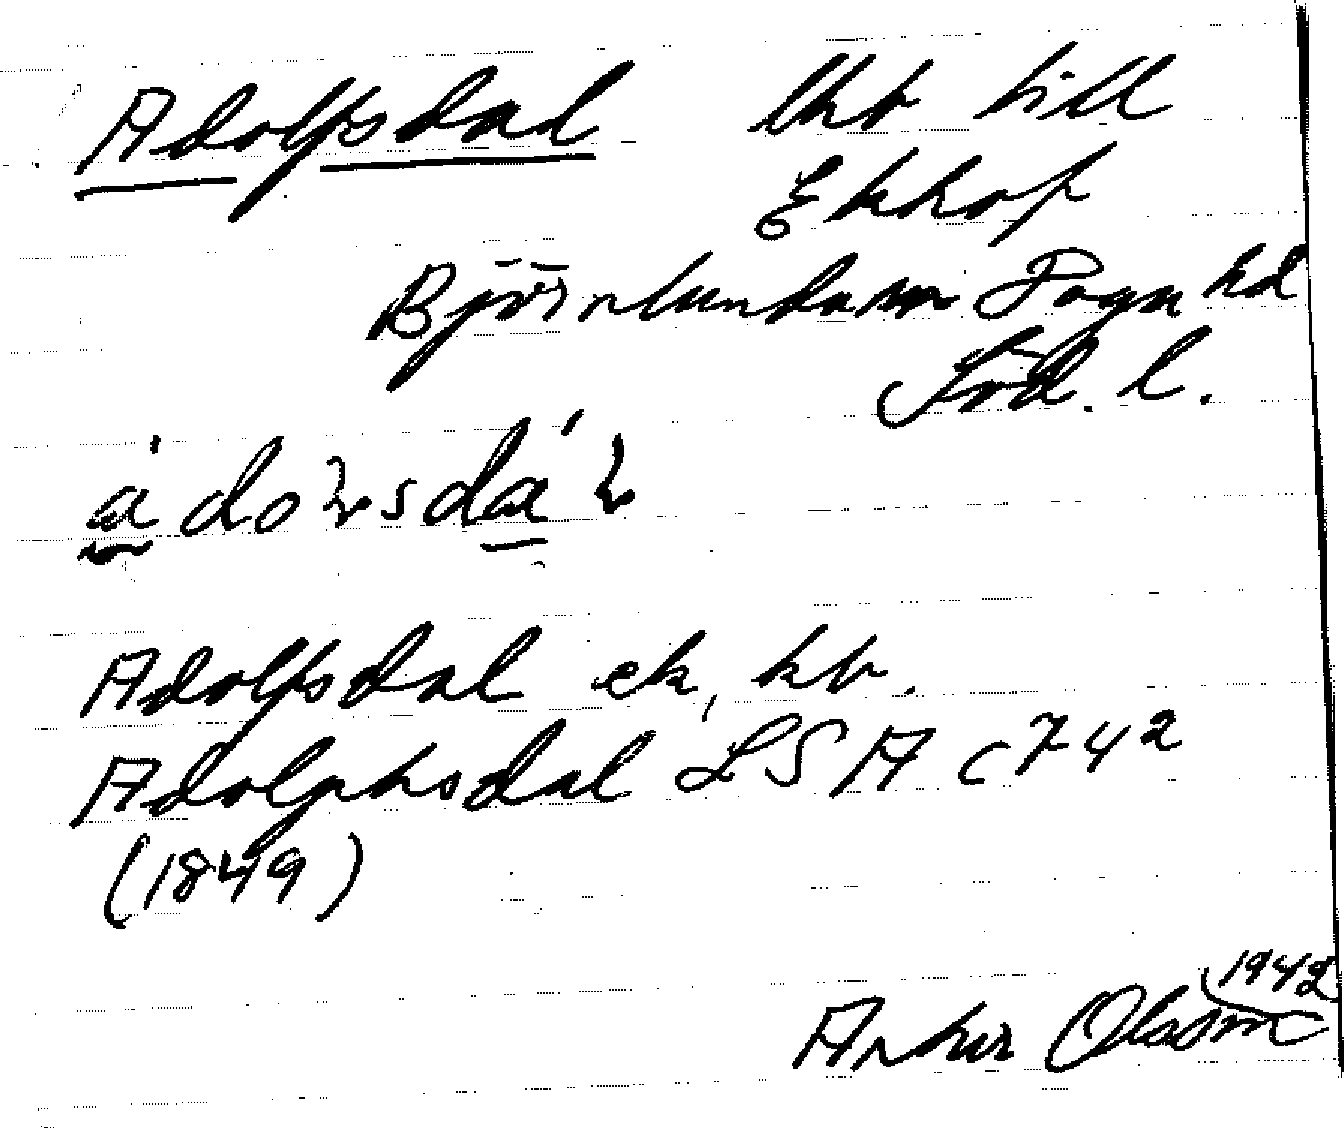 Adolfsdal lht till
Ekhof
Björnlunda sn Daga hd
Söd. l.
Adolfsdal ek, kb.
Adolphsdal LSA C7 42
(1849)
1942
Arthur Olsson